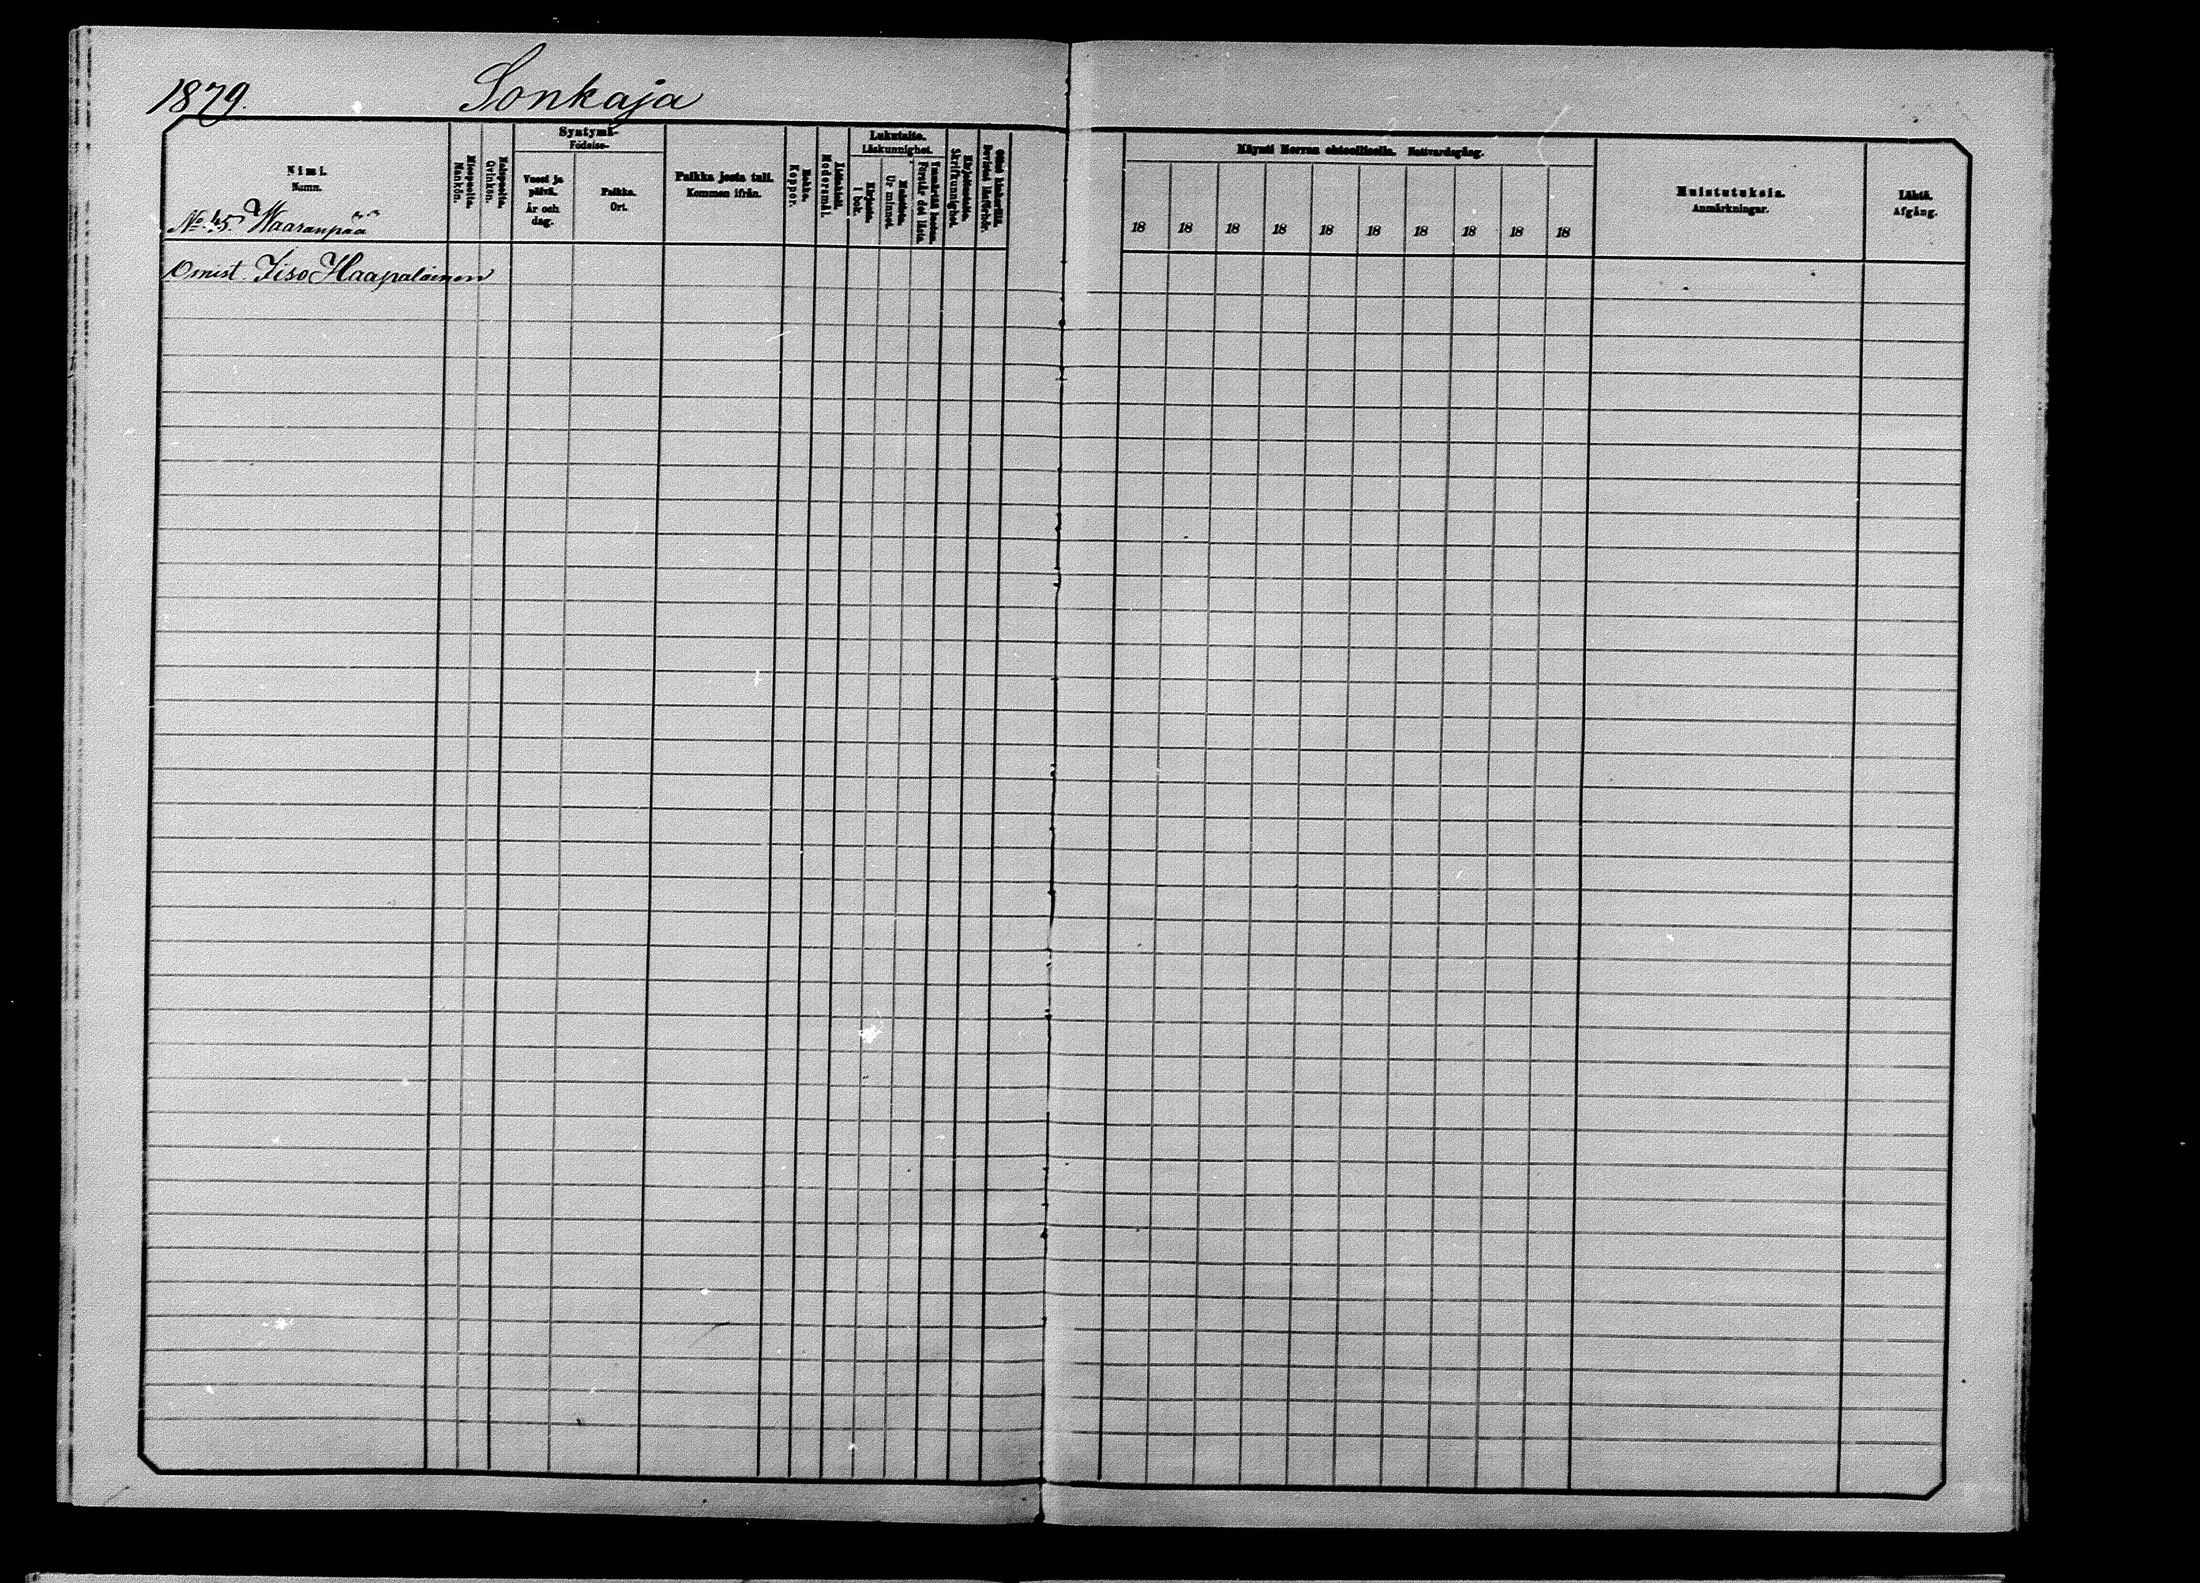 1879. Sonkaja
Nimi.
Namn.
Miespuolia.
Mankön.
Naispuolia.
Qvinkön.
Syntymä-
Födelse-
Vuosi ja
päivä.
År och
dag.
Paikka.
Ort.
Paikka josta tuli.
Kommen ifrån.
Rokko.
Koppor.
Modersmål.
Lukutaito.
Läskunnighet.
Kirjasta.
I bok.
Muistista.
Ur minnet.
Ymmärtää lukem.
Förstår det lästa.
Kirjoitustaito.
Skrifkunnighet.
Bevistat läsförhör.
Käynti Herran ehtoollisella. Nattvardsgång.
18 18 18 18 18 18 18 18 18 18
Muistutuksia.
Anmärkningar.
Lähtö.
Afgång.
No 45 Waaranpää
Omist. Iiso Haapalainen